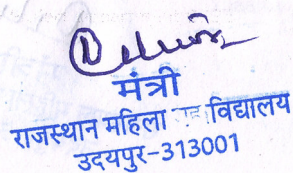 मंत्री
राजस्थान महिला विद्यालय
उदयपुर-313001